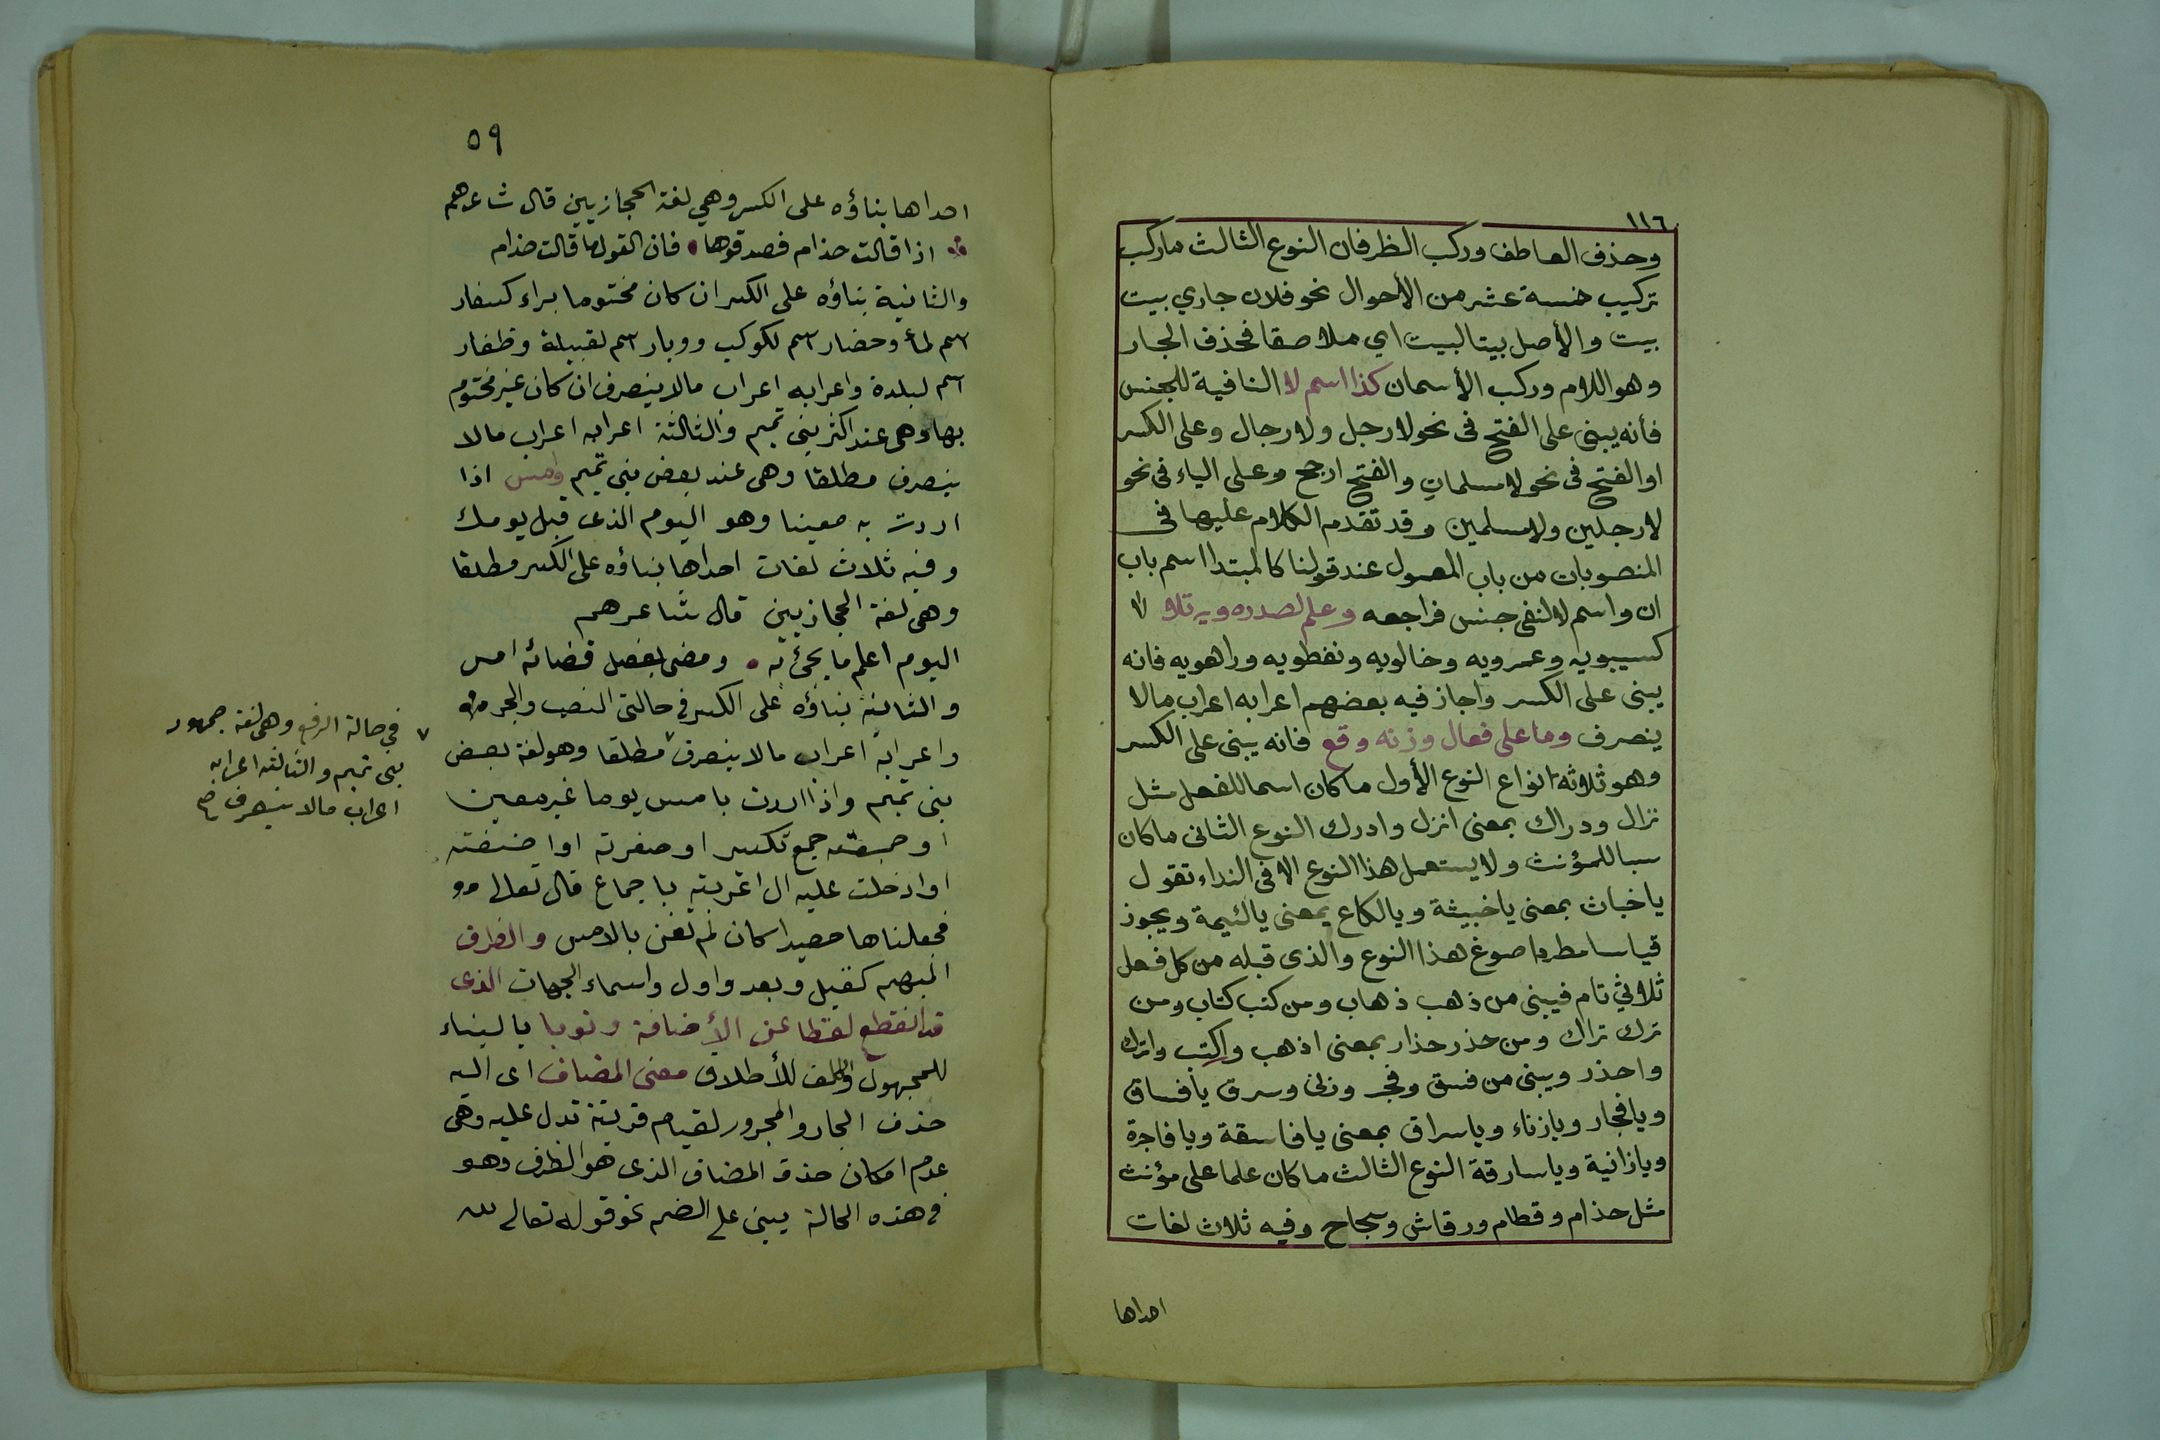 ١١٦
وحذف العاطف وركب الظرفان النوع الثالث ماركب
تركيب خمسة عشر من الأحوال نحو فلان جاري بيت
بيت والأصل بيتا لبيت اي ملاصقا فحذف الجار
وهو اللام وركب الأسمان كذا اسم لا النافية للجنس
فأنه يبنى على الفتح فى نحو لا رجل ولا رجال وعلى الكسر
او الفتح فى نحو لا مسلمات والفتح ارجح وعلى الياء فى نحو
لا رجلين ولا مسلمين وقد تقدم الكلام عليها فى
المنصوبات من باب المعمول عند قولنا كالمبتدا اسم باب
ان واسم لا لنفي جنس فراجعه وعلم لصدره ويه تلا
كسيبويه وعمرويه وخالويه ونفطويه وراهويه فانه
يبنى على الكسر واجاز فيه بعضهم اعرابه اعراب مالا
ينصرف وما على فعال وزنه وقع فانه يبنى على الكسر
وهو ثلاثة انواع النوع الأول ما كان اسما للفعل مثل
نزال ودراك بمعنى انزل وادرك النوع الثانى ما كان
سبا للمؤنث ولا يستعمل هذا النوع الا فى النداء تقول
يا خباث بمعنى يا خبيثة ويا لكاع بمعنى يا لئيمة ويجوز
قياسا مطردا صوغ هذا النوع والذى قبله من كل فعل
ثلاثي تام فيبنى من ذهب ذهاب ومن كتب كتاب ومن
ترك تراك ومن حذر حذار بمعنى اذهب واكتب واترك
واحذر ويبنى من فسق وفجر وزنى وسرق يا فساق
ويا فجار ويا زناء ويا سراق بمعنى يا فاسقة ويا فاجرة
ويا زانية ويا سارقة النوع الثالث ما كان علما على مؤنث
مثل حذام وقطام ورقاش وسجاح وفيه ثلاث لغات
احداها
٥٩
احداها بناؤه على الكسر وهي لغة الحجازيين قال شاعرهم
اذا قالت حذام فصدقوها فان القول ما قالت حذام
والثانية بناؤه على الكسر ان كان مختوما براء كسفار
اسم لماء وحضار اسم لكوكب ووبار اسم لقبيلة وظفار
اسم لبلدة واعرابه اعراب مالا ينصرف ان كان غير مختوم
بها وهى عند اكثر بني تميم والثالثة اعرابه اعراب مالا
ينصرف مطلقا وهى عند بعض بنى تميم وامس اذا
اردت به معينا وهو اليوم الذى قبل يومك
وفيه ثلاث لغات احداها بناؤه على الكسر مطلقا
وهى لغة الحجازيين قال شاعرهم
اليوم اعلم ما يجئ به ومضى بفصل قضائه امس
والثانية بناؤه على الكسر في حالتى النصب والجر
واعرابه اعراب مالا ينصرف مطلقا وهو لغة بعض
بنى تميم واذا اردت بامس يوما غير معين
او جمعته جمع تكسير او صغرته او اضفته
او ادخلت عليه ال اعربته باجماع قال تعالى
فجعلناها حصيدا كان لم تغن بالامس والظرف
المبهم كقبل وبعد واول واسماء الجهات الذى
قد انقطع لفظا عن الأضافة ونويا بالبناء
للمجهول والالف للأطلاق معنى المضاف اى اليه
حذف الجار والمجرور لقيام قرينة تدل عليه وهى
عدم امكان حذف المضاف الذى هو الظرف وهو
فى هذه الحالة يبنى على الضم نحو قوله تعالى لله
٧ في حالة الرفع وهى لغة جمهور
بنى تميم والثالثه اعرابه
اعراب مالا ينصرف صح